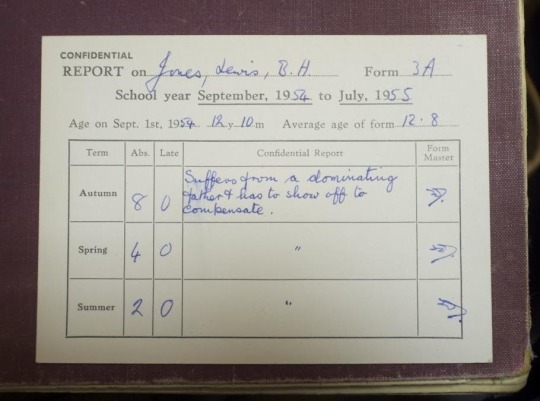 CONFIDENTIAL
REPORT on Jones, Lewis, B.H. Form 3A
School year September, 1954 to July, 1955
Age on Sept. 1st, 1954 12 y 10 m Average age of form 12·8
Term Abs. Late Confidential Report Form Master
Autumn 8 0 Suffers from a dominating
father & has to show off to
compensate.
Spring 4 0 "
Summer 2 0 "